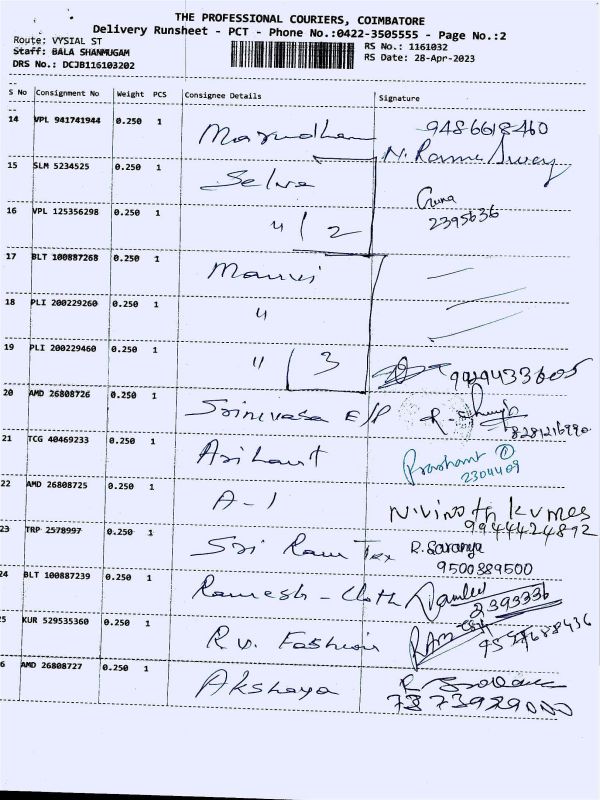 THE PROFESSIONAL COURIERS, COIMBATORE
Delivery Runsheet - PCT - Phone No.:0422-3505555 - Page No.:2
Route: VYSIAL ST
RS No.: 1161032
Staff: BALA SHANMUGAM
RS Date: 28-Apr-2023
DRS No.: DCJB116103202
S No Consignment No Weight PCS Consignee Details Signature
14 VPL 941741944 0.250 1 9486618460
N. Rama Swamy
15 SLM 5234525 0.250 1 Selva
Guna
16 VPL 125356298 0.250 1 " 2 2395636
17 BLT 100887268 0.250 1
18 PLI 200229260 0.250 1 "
19 PLI 200229460 0.250 1 " 3
9929433605
20 AMD 26808726 0.250 1 Srinivasa E/P R.
8281216990
21 TCG 40469233 0.250 1 Arihant Prashant
2304409
22 AMD 26808725 0.250 1 A-1 N.Vinoth kumar
9944424892
23 TRP 2578997 0.250 1 Sri Ram Tex R. Saranya
9500389500
24 BLT 100887239 0.250 1 Ramesh - Cloth
2393336
5 KUR 529535360 0.250 1 R.V. Fashion RAM
6 AMD 26808727 0.250 1 Akshaya R.